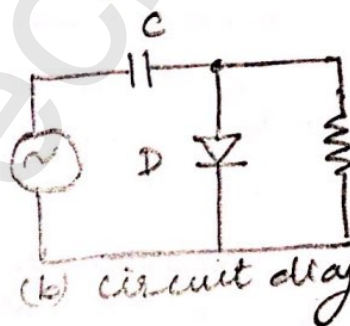 C
D
(b) circuit diag